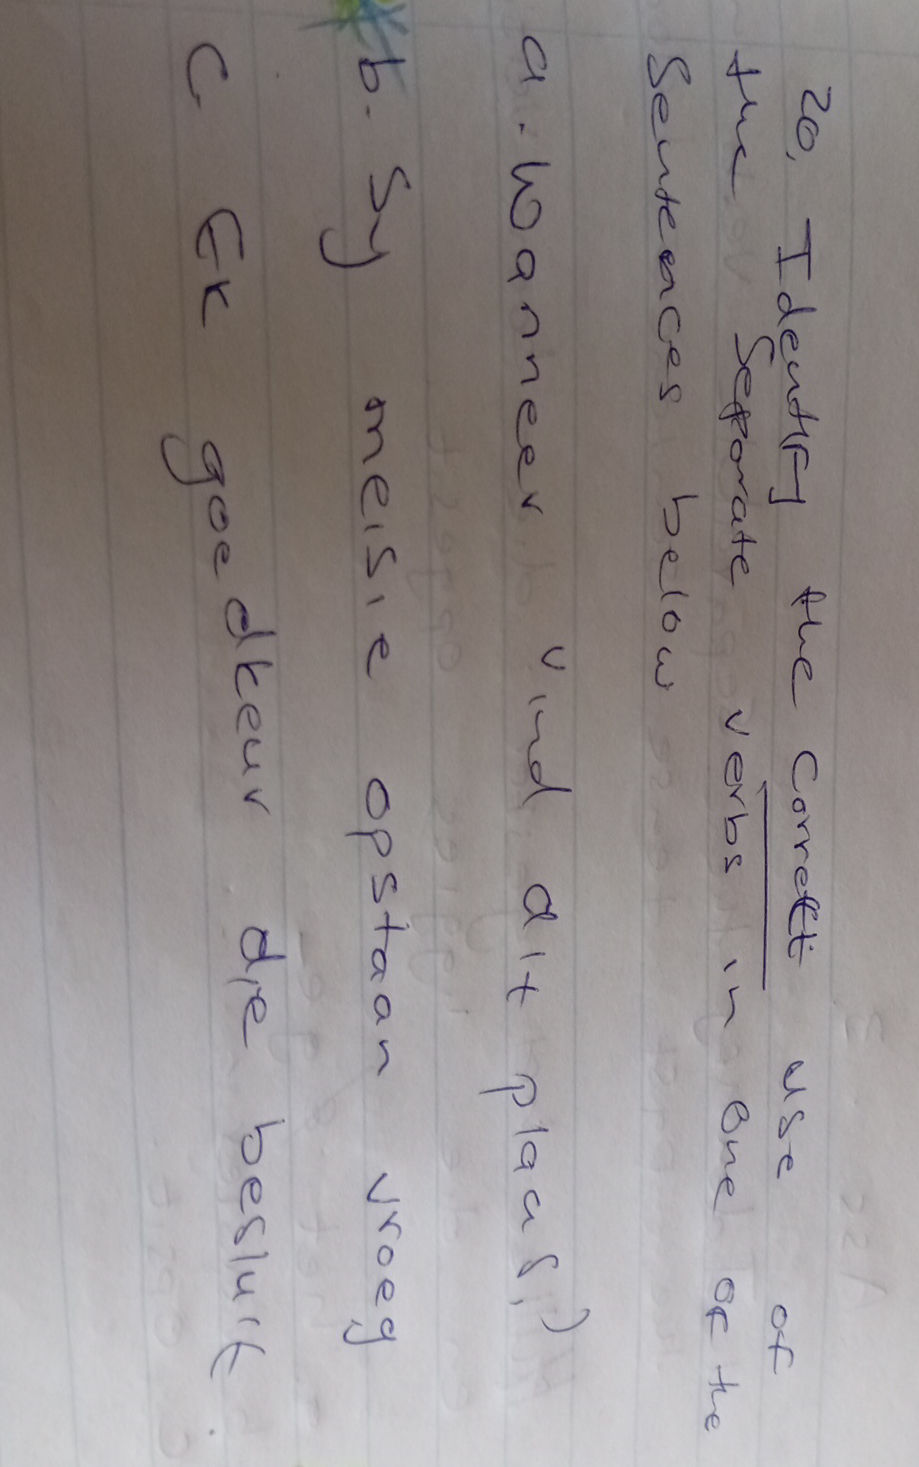 20. Identify the correct use of
the Separate verbs in one of the
Sentences below
a. Wanneer vind dit plaas?
b. Sy meisie opstaan vroeg
C. Ek goedkeur die besluit.